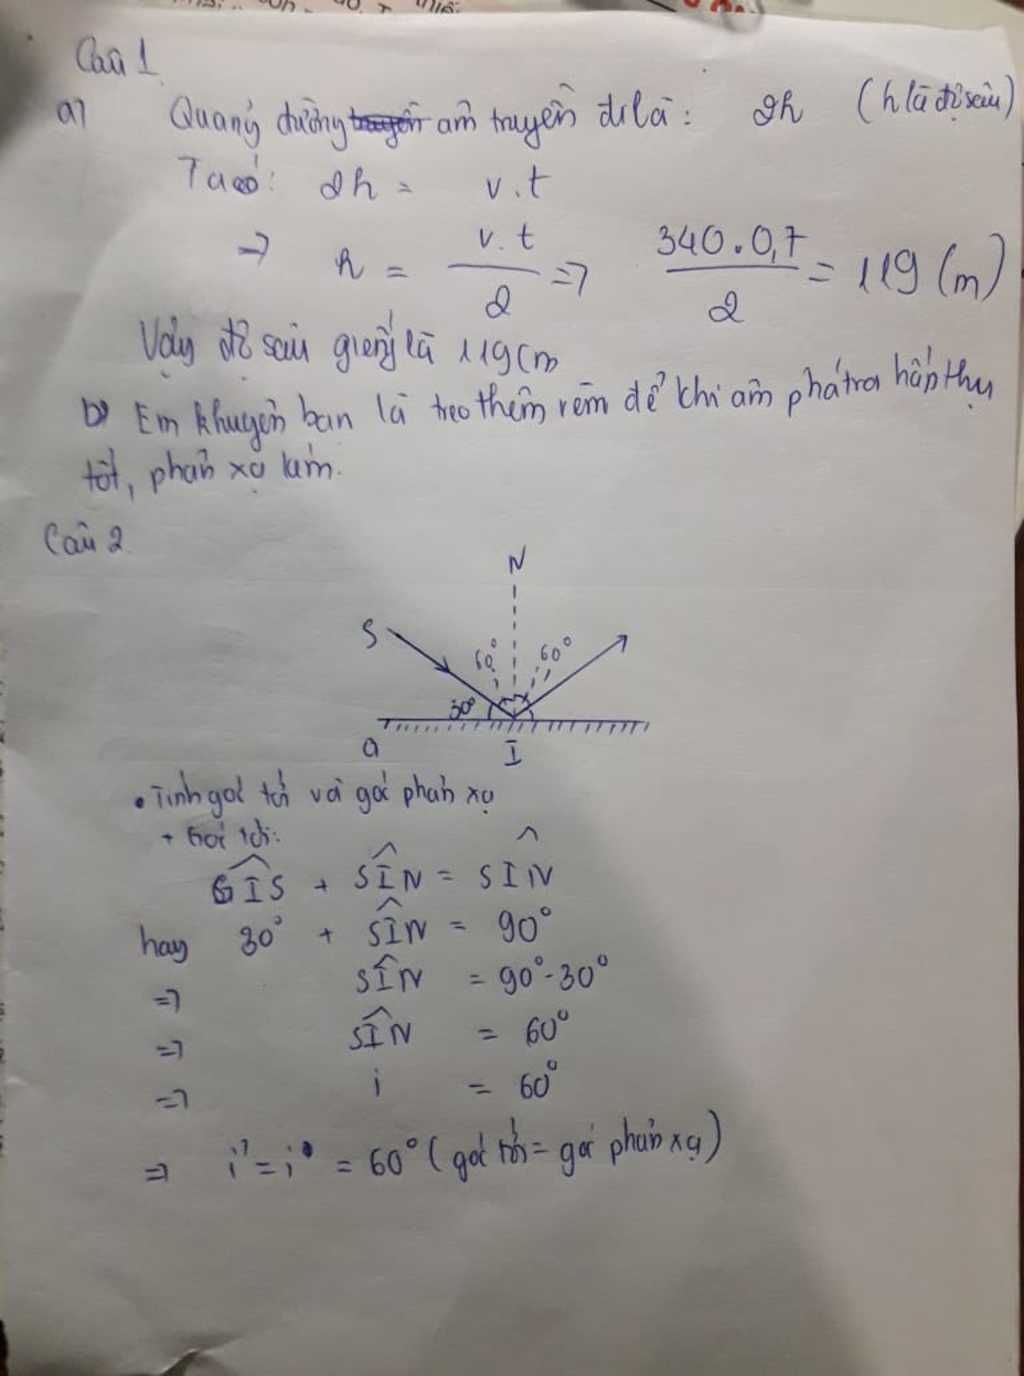 Câu 1
a) Quãng đường âm truyền đi là: 2h (h là độ sâu)
Ta có: 2h = v.t
=> h = v.t / 2 => 340.0,7 / 2 = 119 (m)
Vậy độ sâu giếng là 119(m
b) Em khuyên bạn là treo thêm rèm để khi âm phát ra hấp thụ
tốt, phản xạ kém.
Câu 2
N
S
60° 60°
30°
a I
• Tính góc tới và góc phản xạ
+ Góc tới:
GIS + SIN = SIN
hay 30° + SIN = 90°
=> SIN = 90°-30°
=> SIN = 60°
=> i = 60°
=> i' = i = 60° (góc tới = góc phản xạ)